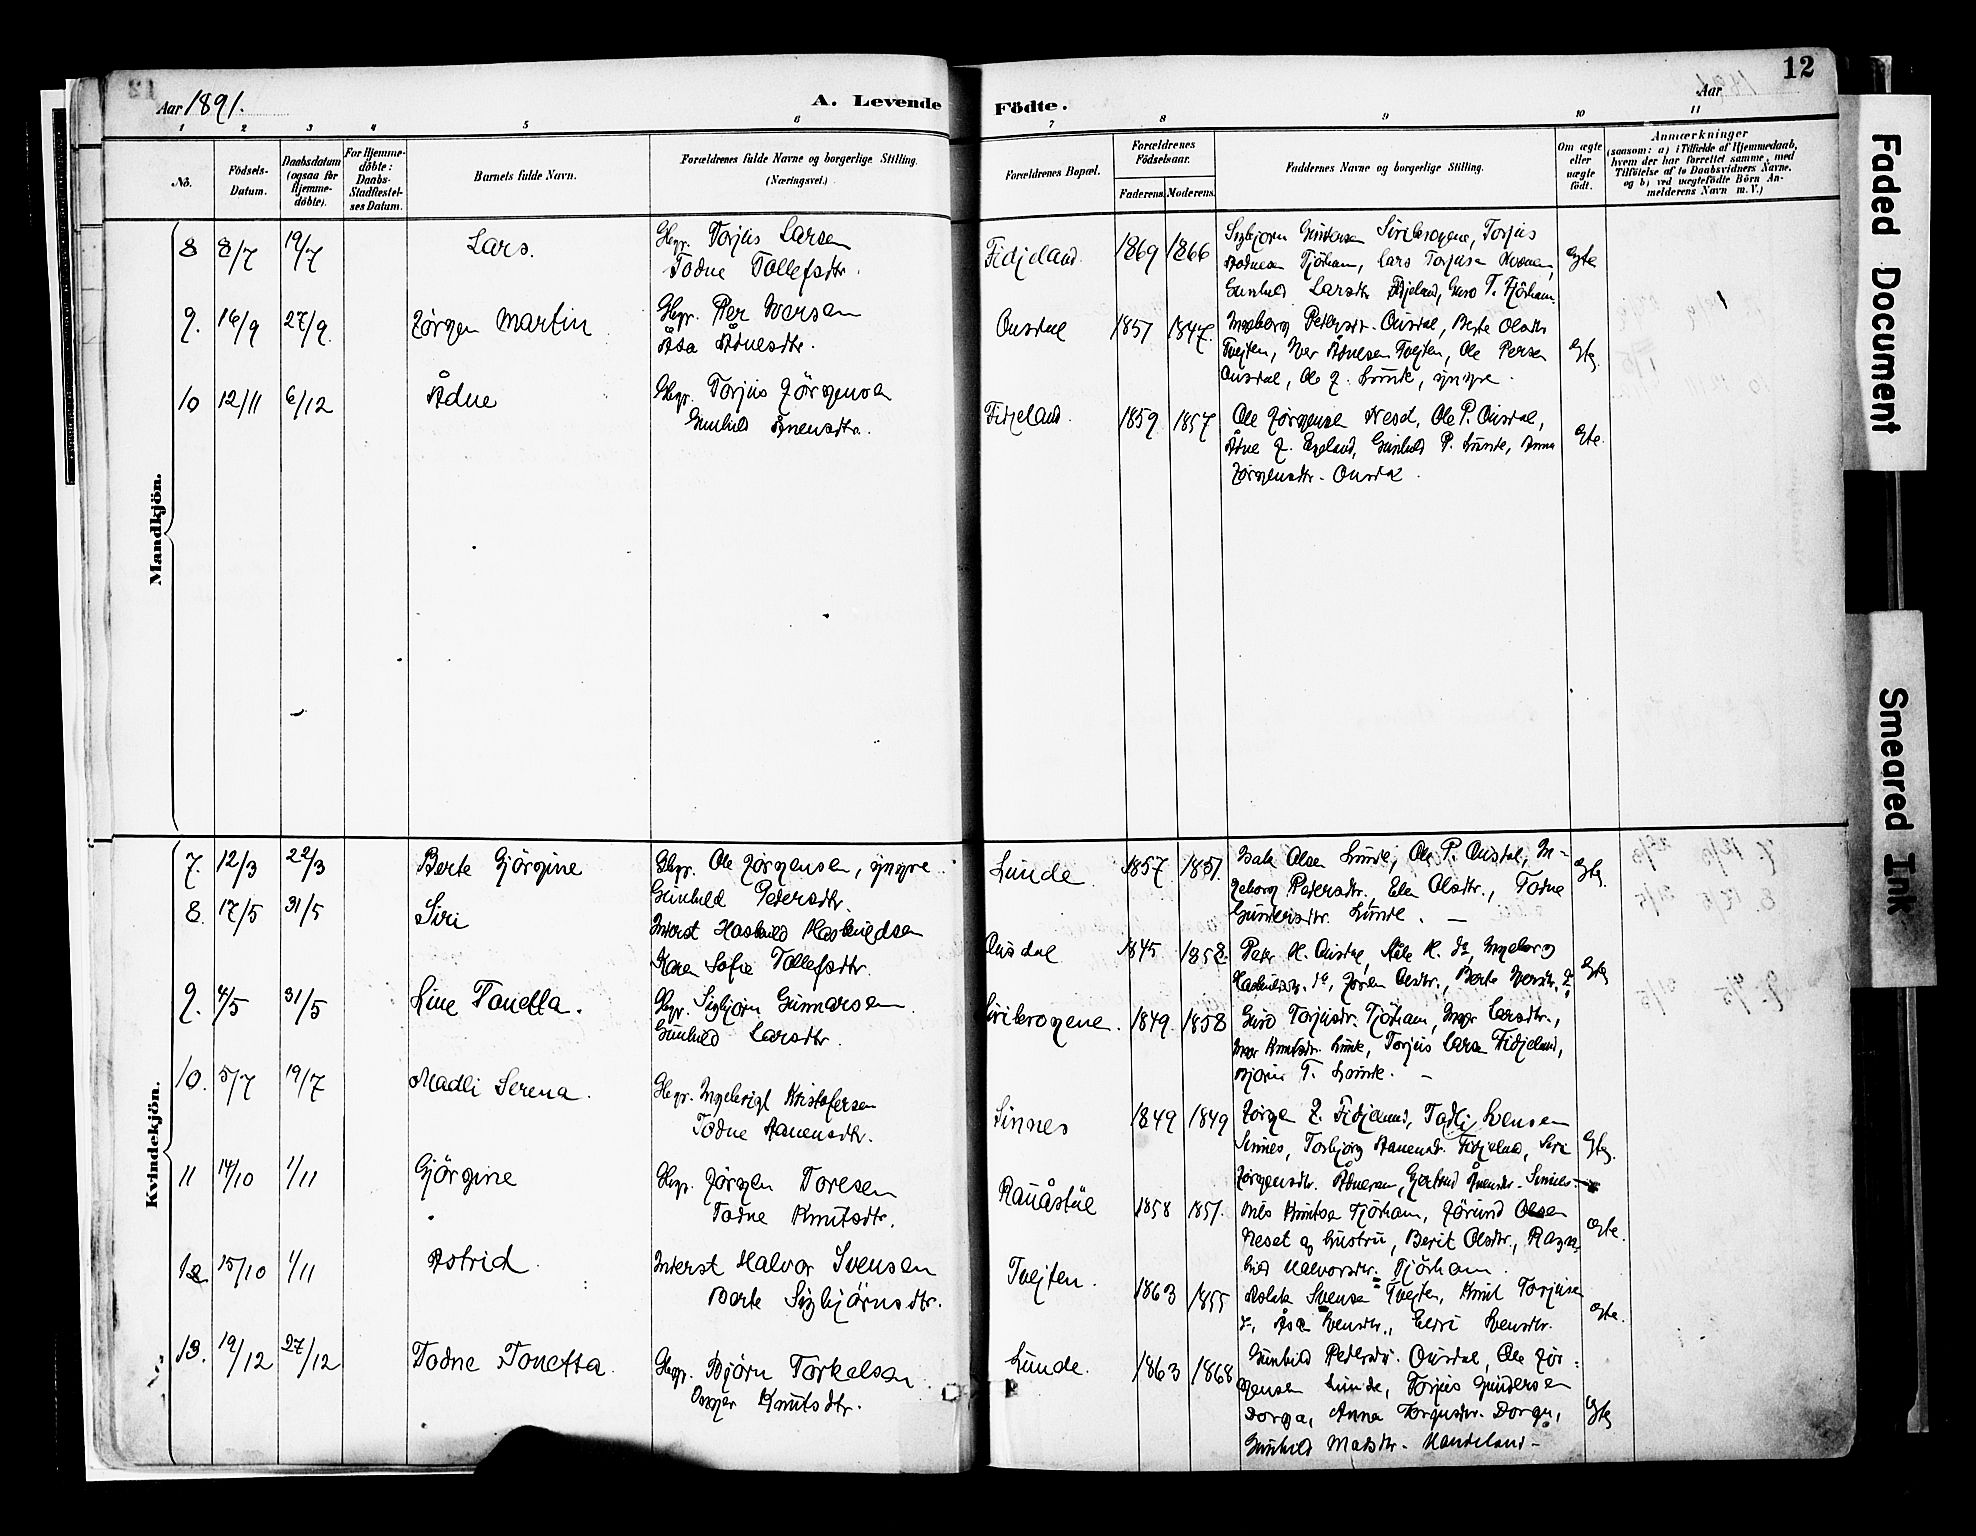 12
Aar 1891.
A. Levende Födte.
Aar
1 2 3 4 5 6 7 8 9 10 11
No.
Födsels-Datum.
Daabsdatum (ogsaa for Hjemme-döbte).
For Hjemme-döbte: Daabs-Stadfæstel-ses Datum.
Barnets fulde Navn.
Forældrenes fulde Navne og borgerlige Stilling.
(Næringsvei.)
Forældrenes Bopæl.
Forældrenes Födselsaar.
Faderens. Moderens.
Faddernes Navne og borgerlige Stilling.
Om ægte eller uægte födt.
Anmærkninger
(saasom: a) i Tilfælde af Hjemmedaab,
hvem der har forrettet samme, med
Tilföielse af to Daabsvidners Navne.
og b) ved uægtefödte Börn An-
melderens Navn m. V.)
Mandkjön.
8 8/7 19/7 Lars. Gbgr. Torjus Larsen
Todne Tollefsdtr.
Fidjeland 1869 1866 Sigbjorn Gundersen Siribrogene, Torjus
Tjörham, Lars Torjusen
Gunhild Larsdtr Fidjeland, Guro T. Tjörham.
Egte
9. 16/9 27/9. Jörgen Martin Gbgr. Per Iversen
Åsa Ådnesdtr.
Ousdal 1851 1847. Ingeborg Pedersdtr. Ousdal, Berte Olsdtr
Tvejten, Iver Ådnesen Tvejten, Ole Persen
Ousdal, Ole J. Lunde, yngre.
Egte
10 12/11 6/12 Ådne Gbgr. Torjus Jörgensen
Gunhild Ånensdtr.
Fidjeland. 1859 1857 Ole Jörgensen Nesd, Ole P. Ousdal,
Ådne J. Egeland, Gunhild P. Lunde, Anna
Jörgensdtr. Ousdal.
Egte.
Kvindekjön.
7. 12/3 22/3 Berte Gjörgine Gbgr. Ole Jörgensen, yngre.
Gunhild Pedersdtr.
Lunde. 1857. 1851. Olsen Lunde, Ole P. Ousdal, In-
geborg Pedersdtr. Elen Olsdtr., Todne
Gundersdtr. Lunde. —
Egte.
8. 17/5 31/5 Siri Inderst Haskuld Haskuldsen
Karen Sofie Tollefsdtr.
Ousdal 1845 1852. Peder H. Ousdal, H. do, Ingeborg
Haskuldsdtr. do, Olsdtr., Berte
Egte
9. 4/5 31/5 Line Tonetta. Gbgr. Sigbjörn Gunnarsen
Gunhild Larsdtr.
Siribrogene. 1849. 1858 Guro Torjusdtr. Tjörham, Inger Larsdtr.,
Inger Knutsdtr. Lunde, Torjus Larsen Fidjeland,
Bjoen T. Lunde. —
10. 5/7 19/7 Madli Serena. Gbgr. Ingebrigt Kristofersen
Todne Aanensdtr.
Sinnes 1849 1849 Jörgen J. Fidjeland, Tadli Svensen
Sinnes, Torbjörg Aanensdtr. Fidjeland, Siri
Jörgensdtr. Ådneram, Gjertrud Ånensdtr. Sinnes.
Egte.
11 14/10 1/11 Gjörgine Gbgr. Jörgen Toresen
Todne Knutsdtr.
Rauåstöl 1858 1851. Nils Knutsen Tjörham, Jörund Olsen
Neset og Hustru, Berit Olsdtr., Ragn-
hild Halvorsdtr. Tjörham.
Egte.
12 15/10 1/11 Astrid. Inderst Halvor Svensen
Berte Sigbjörnsdtr.
Tvejten. 1863 1855 Aslak Svensen Tvejten, Knut Torjusen
Åsa Svensdtr., Svensdtr.
Egte.
13. 19/12 27/12 Todne Tonetta. Gbgr. Björn Torkelsen
Knutsdtr.
Lunde. 1863 1868 Gunhild Pedersdtr. Ousdal, Ole Jör-
gensen Lunde, Torjus Gundersen
Dorga, Anna Torgusdtr. Dorga,
Gunhild Matsdtr. Handeland —
Egte
Faded Document
Smeared Ink